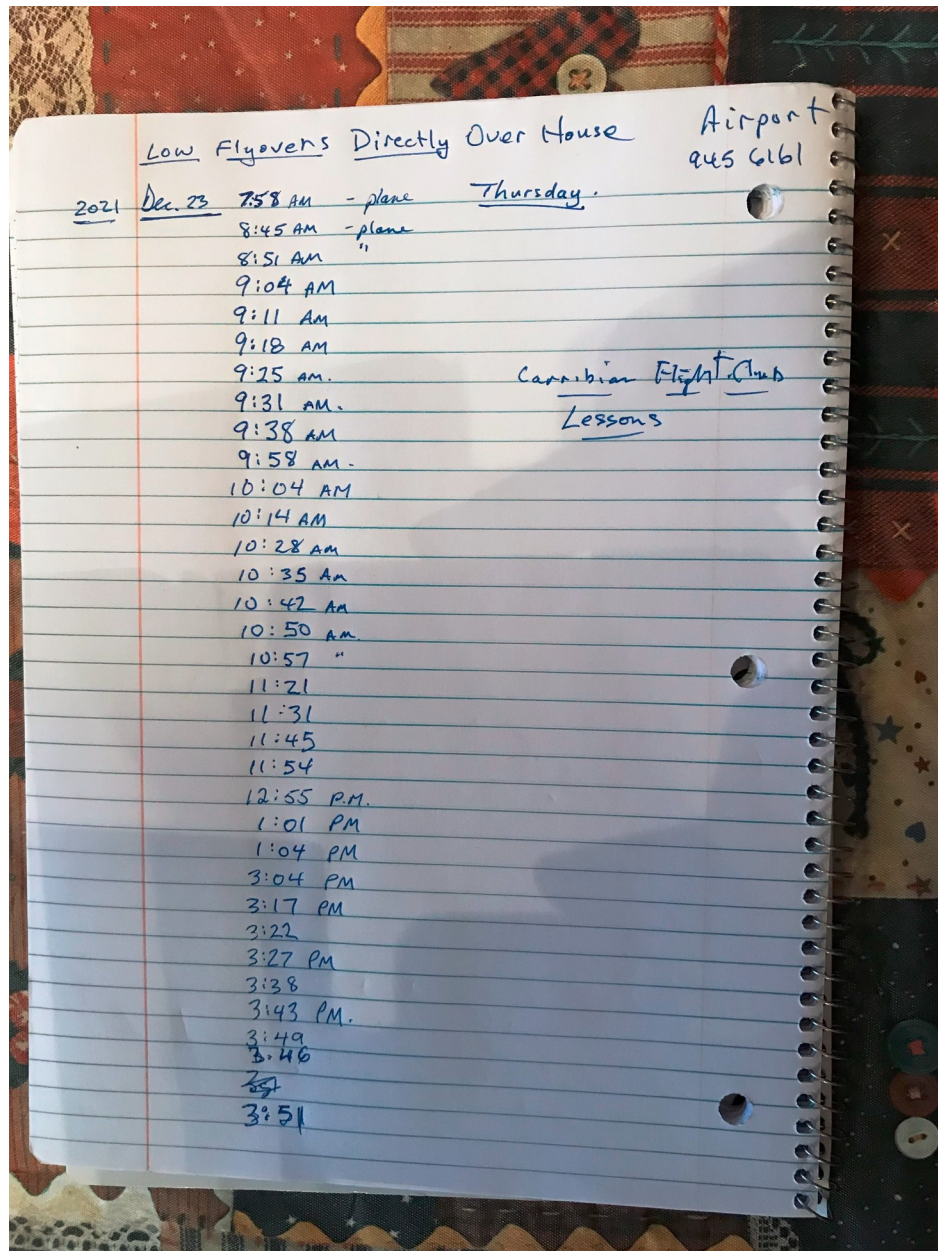 Low Flyovers Directly Over House
Airport
945 6161
2021 Dec. 23 7:58 AM - plane Thursday.
8:45 AM - plane
8:51 AM "
9:04 AM
9:11 AM
9:18 AM
9:25 AM.
9:31 AM.
9:38 AM
9:58 AM.
10:04 AM
10:14 AM
10:28 AM
10:35 AM
10:42 AM
10:50 AM.
10:57 "
11:21
11:31
11:45
11:54
12:55 P.M.
1:01 PM
1:04 PM
3:04 PM
3:17 PM
3:22
3:27 PM
3:38
3:43 PM.
3:49
3:46
3:51
Carribian Flight Club
Lessons